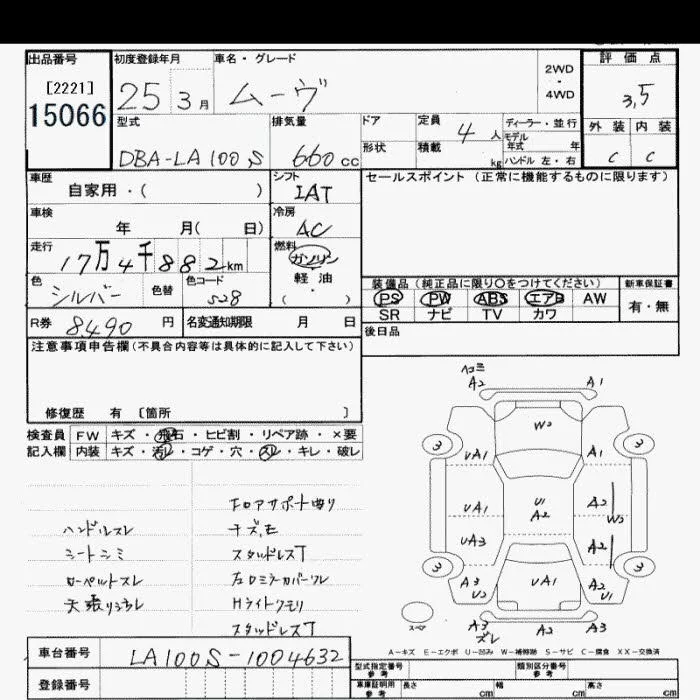 出品番号
[2221]
15066
初度登録年月
25 3月
車名・グレード
ムーヴ
2WD
・
4WD
評価点
3,5
型式
DBA-LA100S
排気量
660cc
ドア
形状
定員
4人
積載
kg
ディーラー・並行
モデル年式 年
ハンドル 左・右
外装 内装
C C
車歴
自家用・( )
シフト
IAT
セールスポイント(正常に機能するものに限ります)
車検
年 月( 日)
冷房
AC
走行
17万4千882km
燃料
ガソリン
軽油
( ・ )
色
シルバー
色替
色コード
S28
装備品(純正品に限り〇をつけてください)
新車保証書
PS PW ABS エアB AW
有・無
SR ナビ TV カワ
R券
8,490円
名変通知期限 月 日
後日品
注意事項申告欄(不具合内容等は具体的に記入して下さい)
修復歴 有 [箇所 ]
検査員
記入欄
FW キズ・飛石・ヒビ割・リペア跡・×要
内装 キズ・汚レ・コゲ・穴・スレ・キレ・破レ
ハンドルスレ
シートシミ
カーペットスレ
天張りウスレ
フロアサポート曲り
キズ、モ
スタッドレスT
左ロミラーカバーワレ
Hライトクモリ
スタッドレスT
ヘコミ
A2 A1
3 3
W2
UA1 A1
UA1 U1 A2 A2
W2
UA3 A2
3 3
A3 UA1 A2
U2 U1
スペア
A3 A2 A3
ズレ
A-キズ E-エクボ U-凹み W-補修跡 S-サビ C-腐食 XX-交換済
車台番号
LA100S-1004632
登録番号
型式指定番号
参考
類別区分番号
参考
車庫証明用
参考
長さ cm 幅 cm 高さ cm